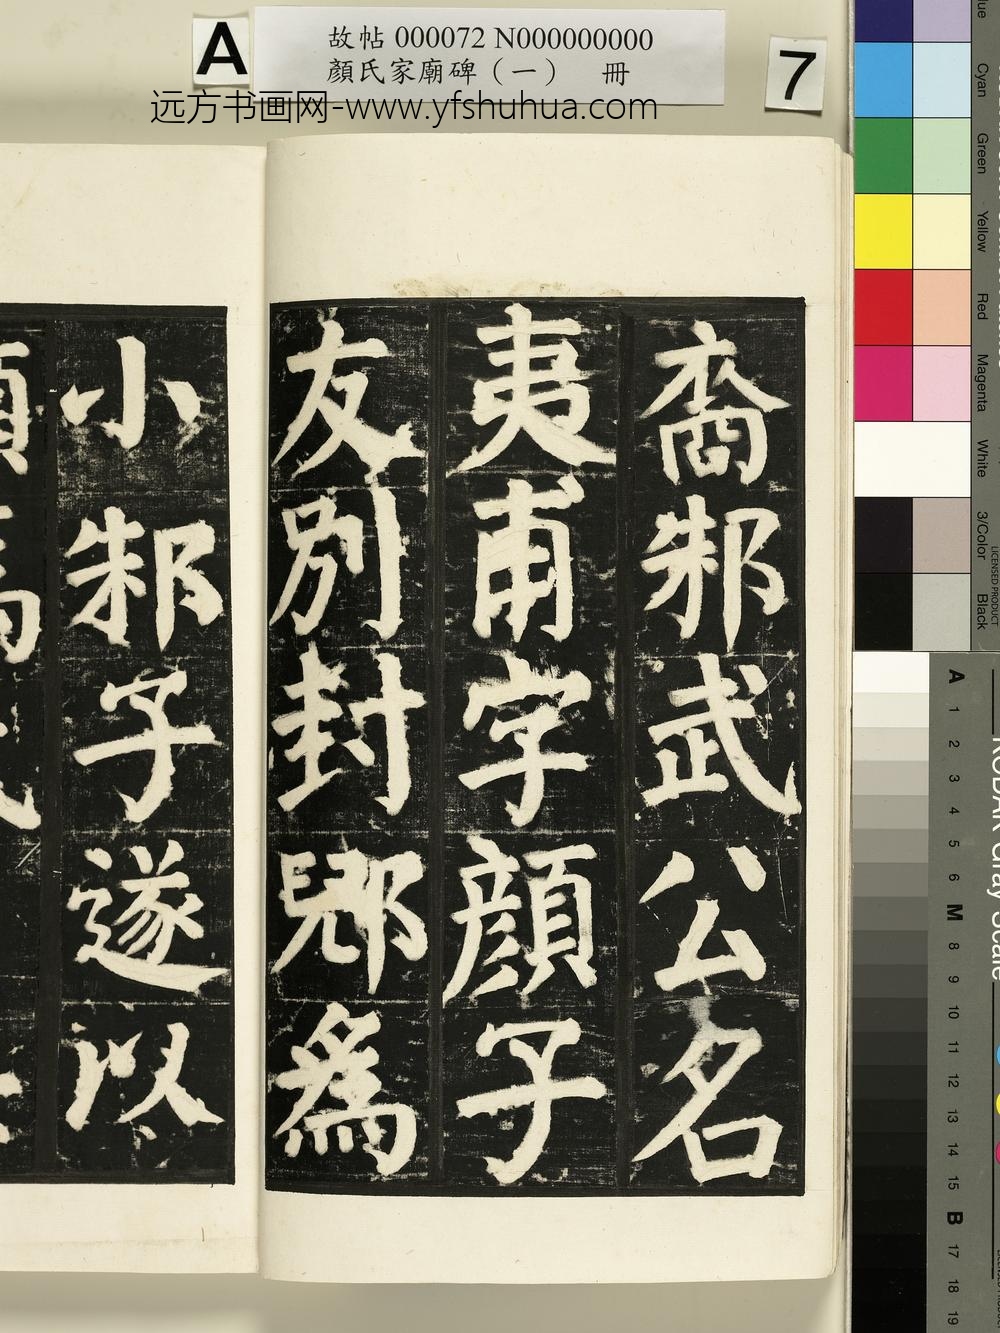 A
故帖 000072 N000000000
顏氏家廟碑（一） 冊
7
远方书画网-www.yfshuhua.com
裔邾武公名
夷甫字顔子
友別封郳爲
小邾子遂以
Cyan
Green
Yellow
Red
Magenta
White
3/Color
Black
LICENSED PRODUCT
Gray Scale
A 1 2 3 4 5 6 M 8 9 10 11 12 13 14 15 B 17 18 19